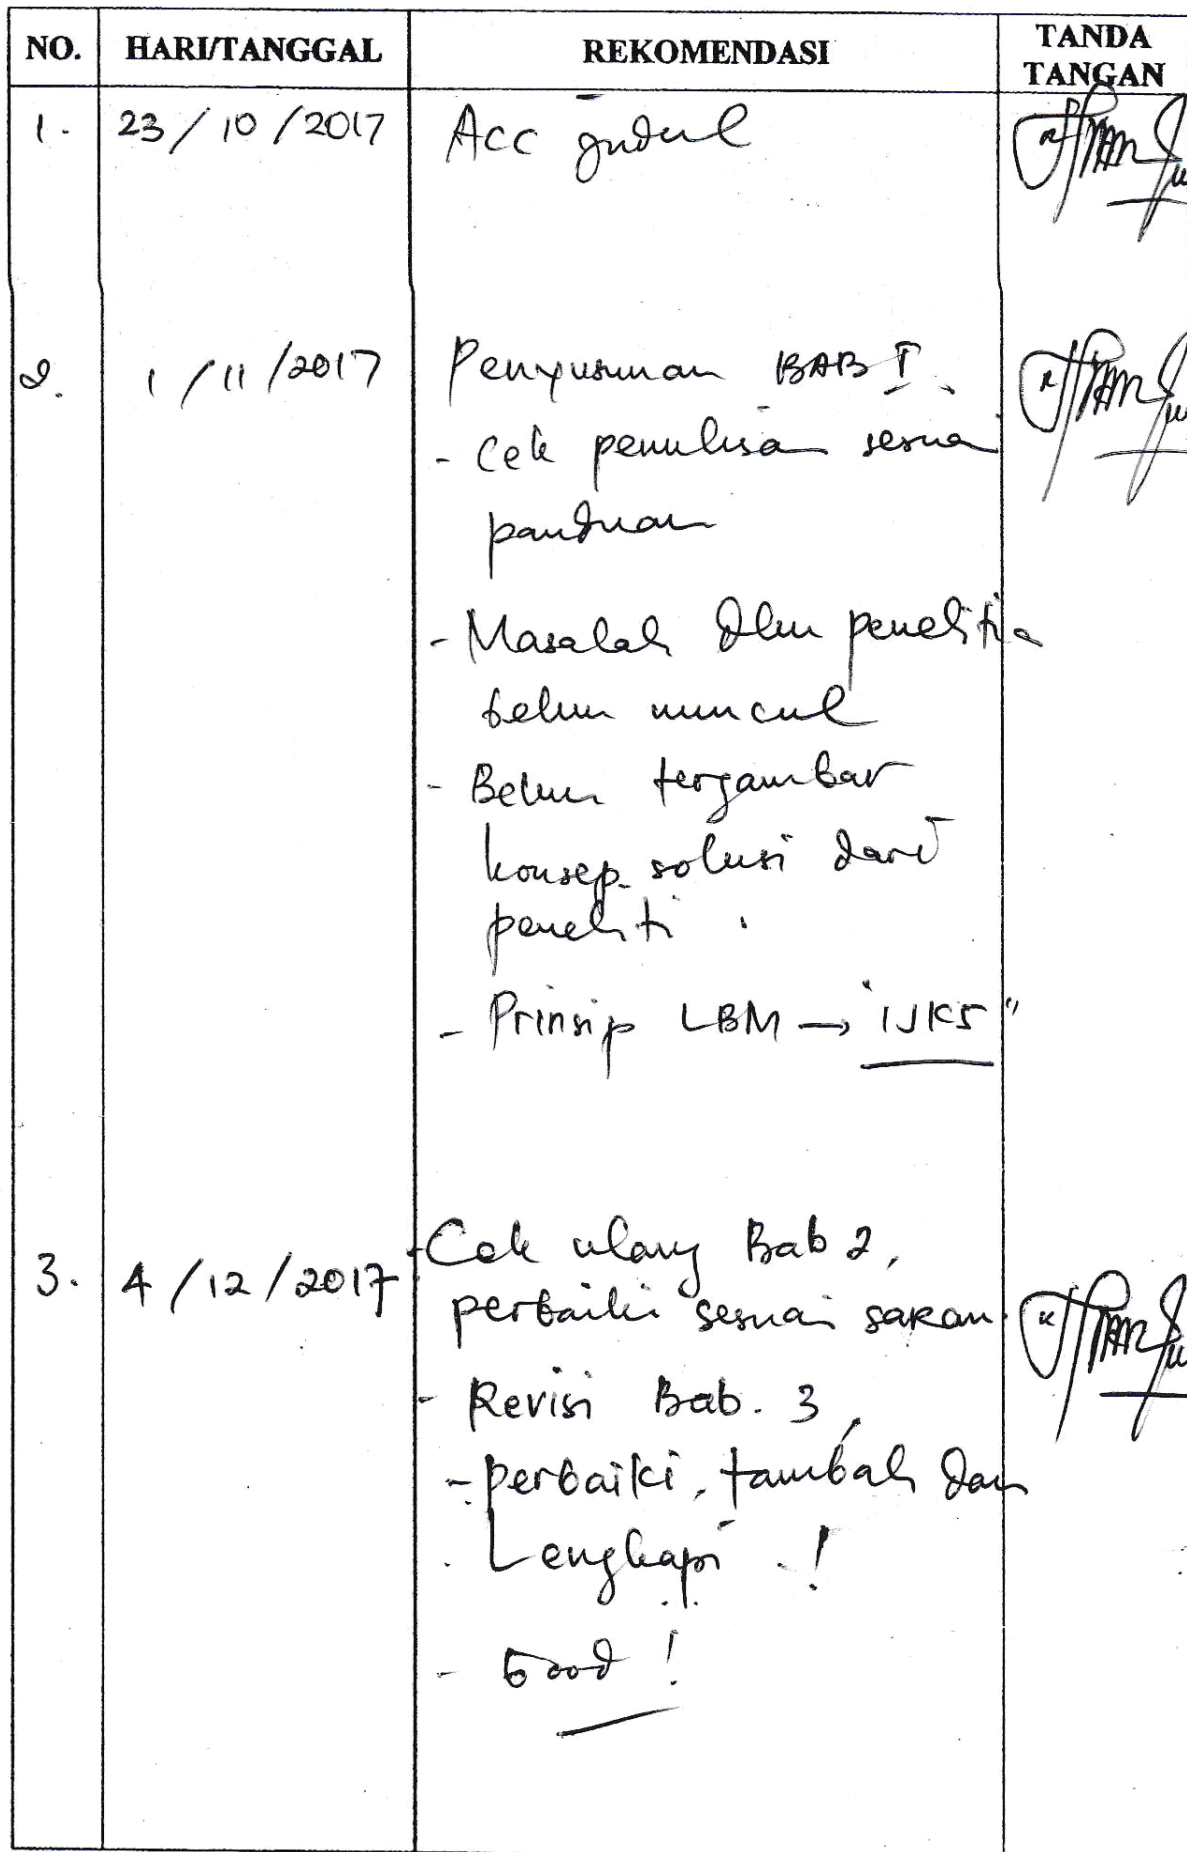 NO. HARI/TANGGAL REKOMENDASI TANDA TANGAN
1. 23/10/2017 Acc judul
2. 1/11/2017 Penyusunan BAB I.
- Cek penulisan sesuai
panduan
- Masalah dlm penelitian
belum muncul
- Belum tergambar
konsep solusi dari
peneliti.
- Prinsip LBM → "IJKS"
3. 4/12/2017 - Cek ulang Bab 2,
perbaiki sesuai saran.
- Revisi Bab. 3,
- perbaiki, tambah dan
Lengkapi !
- Good !